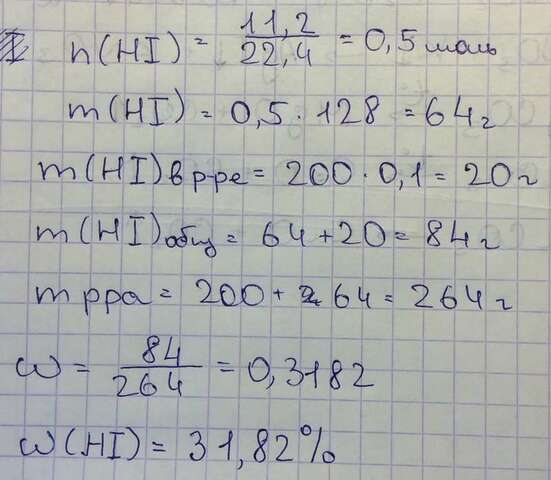 n(HI) = 11,2 / 22,4 = 0,5 моль
m(HI) = 0,5 · 128 = 64 г
m(HI) в р-ре = 200 · 0,1 = 20 г
m(HI) общ = 64 + 20 = 84 г
m рра = 200 + 64 = 264 г
ω = 84 / 264 = 0,3182
ω(HI) = 31,82%